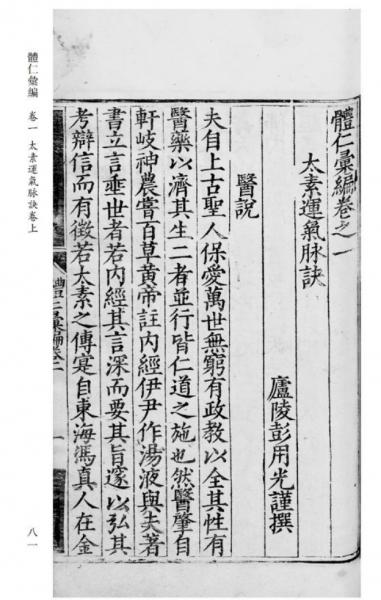 體仁彙編卷之一
太素運氣脉訣
廬陵彭用光謹撰
醫說
夫自上古聖人保愛萬世無窮有政教以全其性有
醫藥以濟其生二者並行皆仁道之施也然醫肇自
軒岐神農嘗百草黄帝註内經伊尹作湯液與夫著
書立言垂世者若内經其言深而要其旨邃以弘其
考辯信而有徵若太素之傳寔自東海馮真人在金
體仁彙編卷一
一
體仁彙編 卷一 太素運氣脉訣卷上
八一